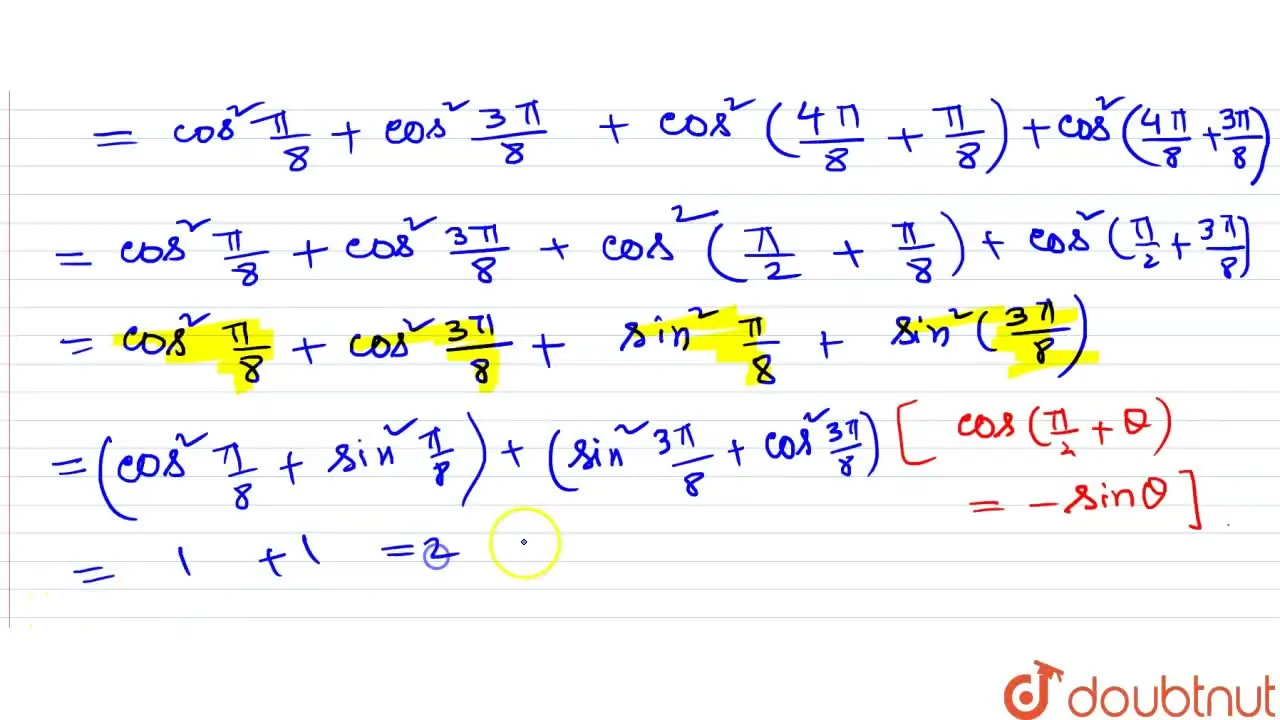 = cos² π/8 + cos² 3π/8 + cos² (4π/8 + π/8) + cos² (4π/8 + 3π/8)
= cos² π/8 + cos² 3π/8 + cos² (π/2 + π/8) + cos² (π/2 + 3π/8)
= cos² π/8 + cos² 3π/8 + sin² π/8 + sin² (3π/8)
= (cos² π/8 + sin² π/8) + (sin² 3π/8 + cos² 3π/8) [ cos (π/2 + θ)
= - sinθ ]
= 1 + 1 = 2
doubtnut